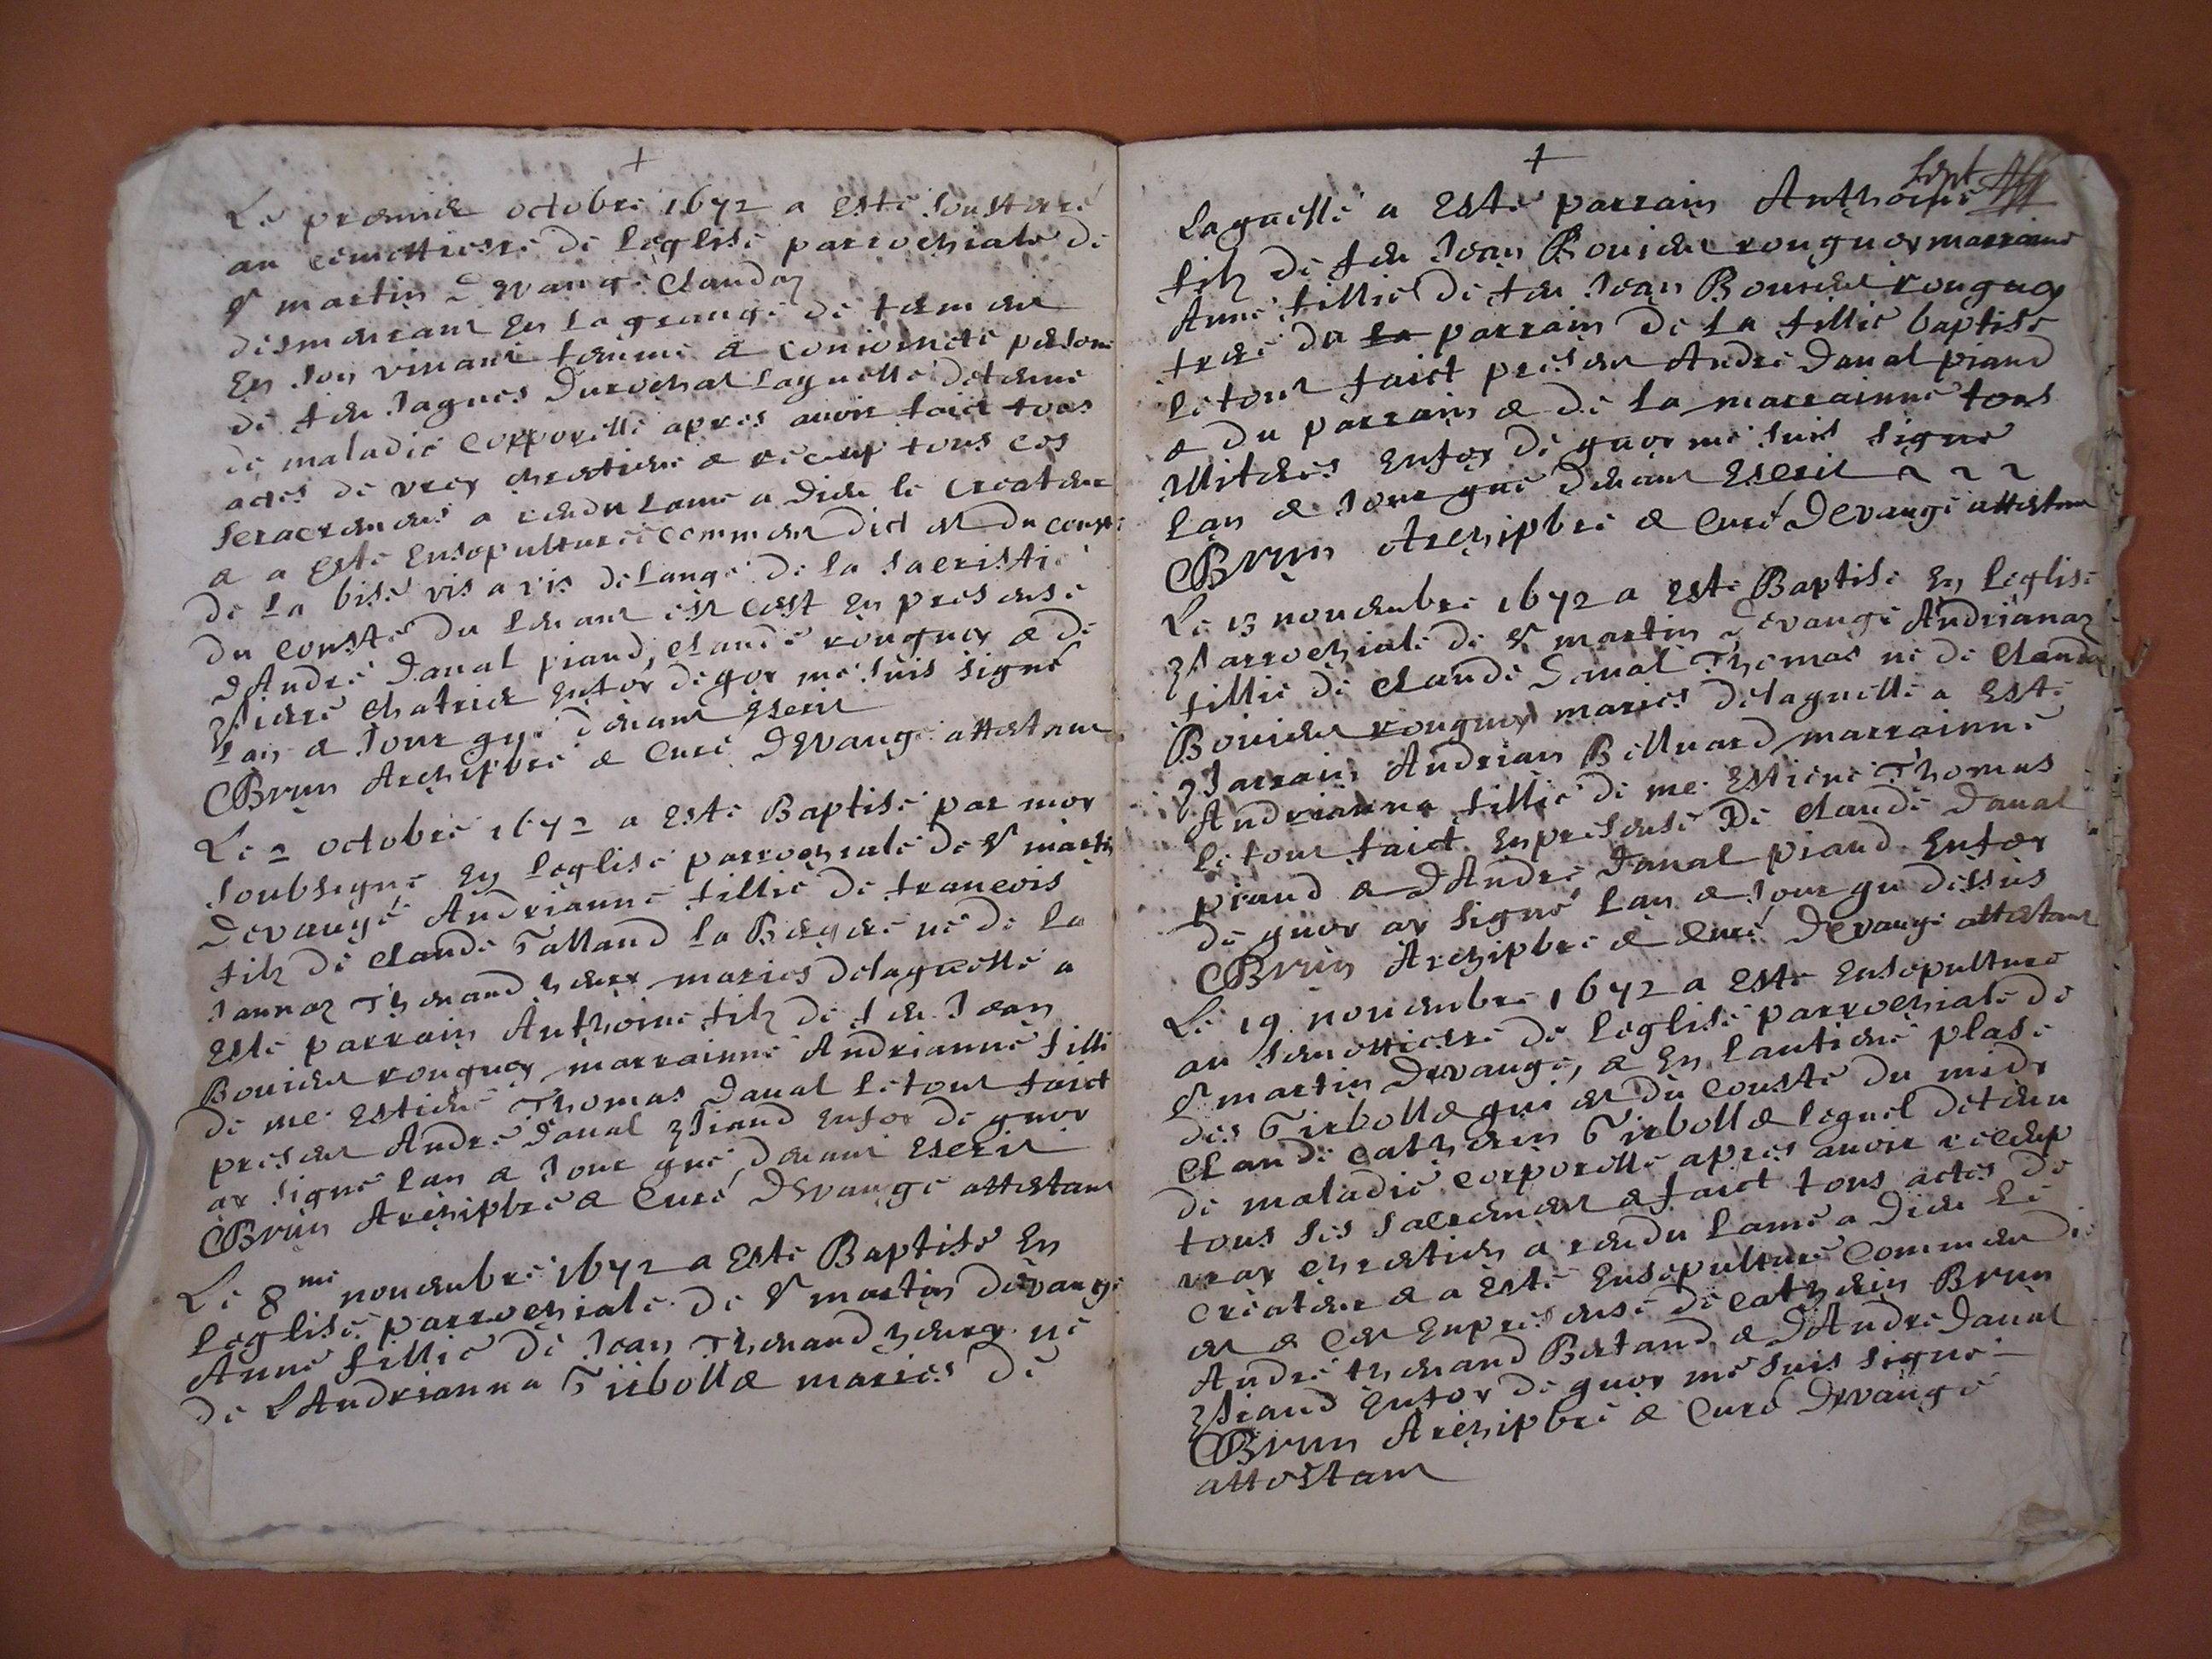 +
Le premier octobre 1672 a esté soustere
au cemettiere de leglise parrochiale de
St martin Devange Claudaz
desmeurant en la grange de
en son vivant femme & conioincte
de feu Jaques Durochat laquelle detenue
de maladie corporelle apres avoir faict tous
actes de vrey chrestiene & receup tous ces
seracremens a rendu lame a Dieu le createur
& a esté ensopulturee comme en dict est du couste
de la bise vis a vis de lange de la sacristie
du couste du levant est cest en presense
dAndre Danal piand, claude rouguey & de
pierre chatrier en foy de qoy me suis signé
lan & jour que devant escrit
Brun Archiptre & Curé Devange attestant
Le 2 octobre 1672 a esté Baptisé par moy
soubsigne en leglise parrochiale de St martin
Devange Andrianne fillie de francois
filz de claude Talland la Bergere né de la
Jannaz Thenand heury maries de laquelle a
esté parrain Anthoine filz de feu Jean
Bouvier rouguey marrainne Andrianne filli
de me Estiene Thomas Danal le tout faict
present Andre Danal piand en foy de quoy
ay signe lan & jour que devant escrit
Brun Archiptre & Curé Devange attestant
Le 8me novembre 1672 a esté Baptise en
leglise parrochiale de St martin devange
Anne fillie de Jean Thenand heury né
de LAndrianna Tirbolle maries de
+
sept
laquelle a esté parrain Anthoine
filz de feu Jean Bouvier rouguey marraine
Anne fillie de feu Jean Bouvier rouguey
frere du la parrain de la fillie baptise
le tout faict present Andre Danal piand
& du parrain & de la marrainne tous
en foy de quoy me suis signe
lan & jour que devant escrit
Brun Archiptre & Curé Devange attestant
Le 13 novembre 1672 a esté Baptisé en leglise
parrochiale de St martin Devange Andrianaz
fillie de claude Danal Thomas né de Clauda
Bouvier rouguey maries de laquelle a esté
parrain Andrian Belluard marrainne
Andrianna fillie de me Estiene Thomas
le tout faict en presense De claude Danal
piand & dAndre Danal piand en foy
de quoy ay signé lan & jour que dessus
Brun Archiptre & curé Devange attestant
Le 19 novembre 1672 a esté ensopulture
au semettiere de leglise parrochiale de
St martin Devange, & en lantiene plase
des Tirbolle qui est du couste du midy
Claude catherin Tirbolle lequel detenu
de maladie corporelle apres avoir receup
tous ses sacremens & faict tous actes de
vray chrestien a rendu lame a Dieu le
createur & a esté ensopulture comme en dit
est & cest en presense de catherin Brun
Andre thenand Bertand & dAndre Danal
piand en foy de quoy me suis signe
Brun Archiptre & Curé Devange
attestant